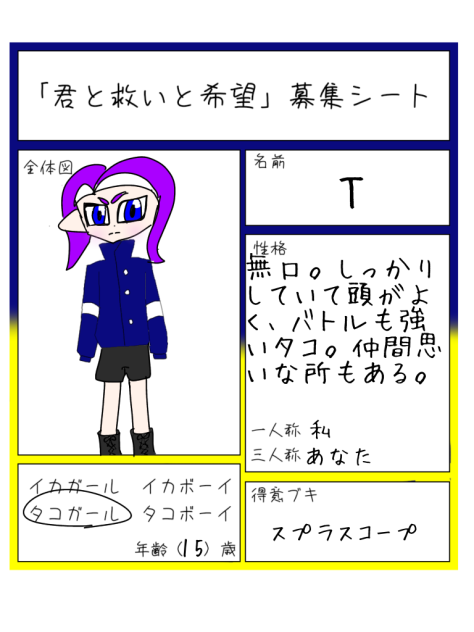 「君と救いと希望」募集シート
全体図
名前
T
性格
無口。しっかり
していて頭がよ
く、バトルも強
いタコ。仲間思
いな所もある。
一人称 私
三人称 あなた
イカガール イカボーイ
タコガール タコボーイ
年齢(15)歳
得意ブキ
スプラスコープ